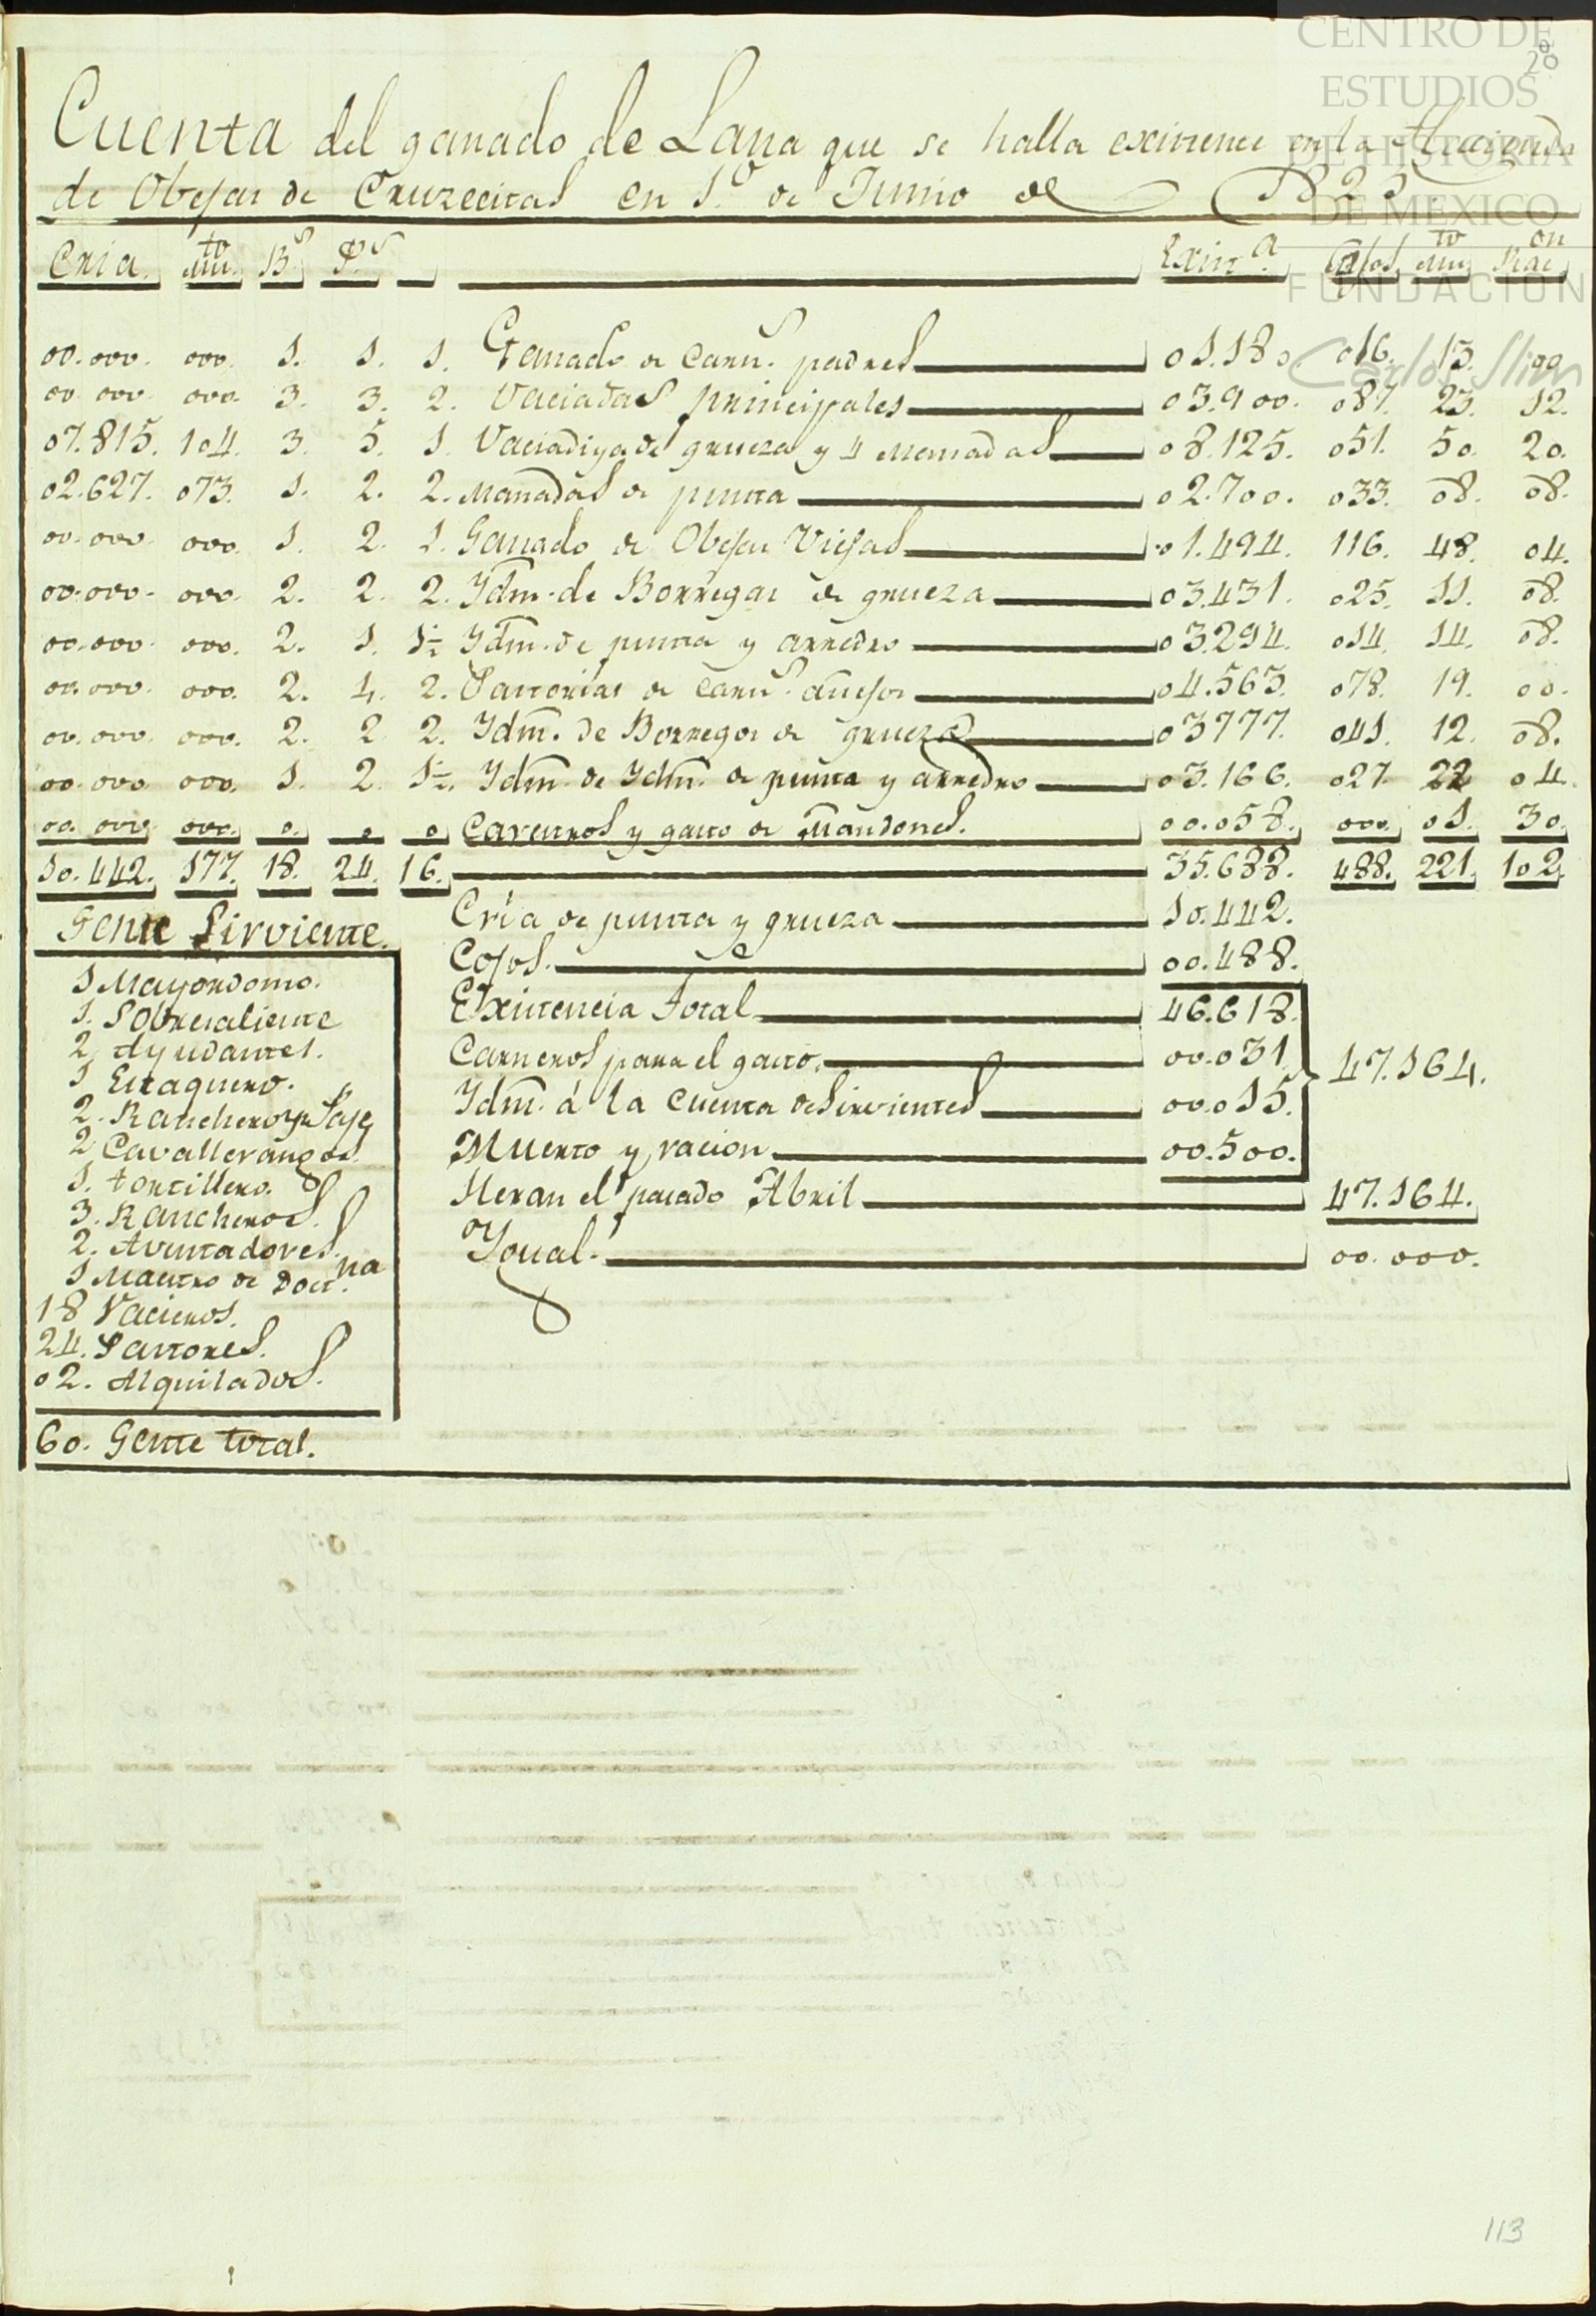 CENTRO DE
ESTUDIOS
DE HISTORIA
DE MEXICO
FUNDACION
Carlos Slim
28
Cuenta del ganado de Lana que se halla existente en la Hacienda
de Obejas de Cruzecitas en 1.º de Junio de 1825
Cria. Mu.to B.s P.s Exist.a Cojos Mu.to Rac.on
00.000. 000. 1. 1. 1. Ganado de Carn.s padres 01.180 016. 13. 00
00.000. 000. 3. 3. 2. Vaciadas principales 03.900. 087. 23. 12.
07.815. 104. 3. 5. 1. Vaciadiyades grueza y 4 Manadas 08.125. 051. 50. 20.
02.627. 073. 1. 2. 2. Manadas de punta 02.700. 033. 08. 08.
00.000. 000. 1. 2. 1. Ganado de Obejas Viejas 01.494. 116. 48. 04.
00.000. 000. 2. 2. 2. Ydm. de Borregas de grueza 03.431. 025. 11. 08.
00.000. 000. 2. 1. 1½ Ydm. de punta y arredro 03.294. 014. 14. 08.
00.000. 000. 2. 4. 2. Pastorias de Carn.s añejos 04.563. 078. 19. 00.
00.000. 000. 2. 2 2. Ydm. de Borregos de grueza 03777. 041. 12. 08.
00.000 000. 1. 2. 1½. Ydm. de Ydm. de punta y arredro 03.166. 027. 22 04.
00.000 000. 0. 0 0 Carneros y gasto de Mandones. 00.058. 000. 01. 30.
10.442. 177. 18. 24. 16. 35.688. 488. 221. 102.
Cria de punta y grueza 10.442.
Cojos. 00.488.
Existencia total 46.618.
Carneros para el gasto. 00.031. 47.164.
Ydm. á la Cuenta de Sirvientes 00.015.
Muerto y racion 00.500.
Heran el pasado Abril 47.164.
Ygual. 00.000.
Gente Sirviente.
1 Mayordomo.
1. Sobresaliente
2. Ayudantes.
1 Estaquero.
2. Rancheros
2 Cavallerangos.
1. tortillero.
3. Rancheros.
2. Aventadores.
1 Maestro de Doct.na
18 Vacieros.
24. Pastores.
02. Alquilados.
60. Gente total.
113